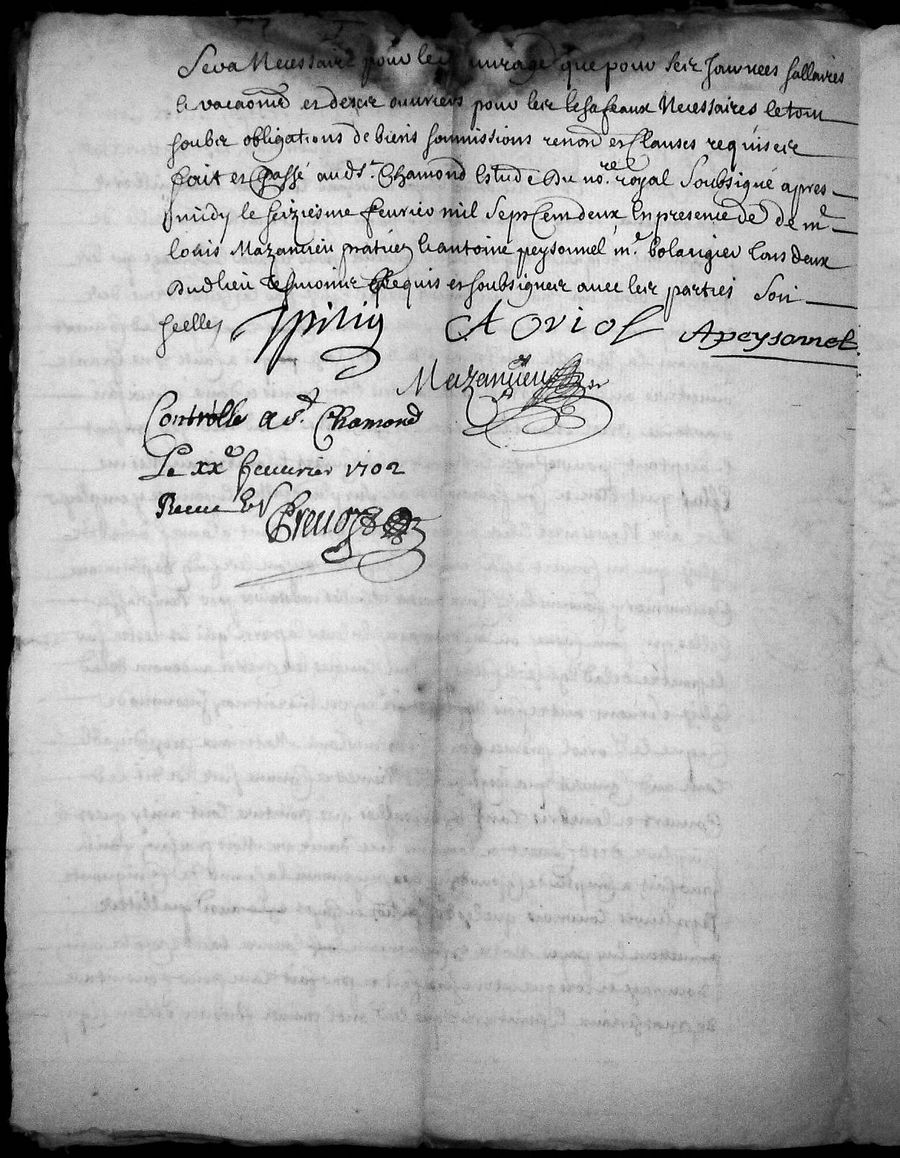 Sera Necessaire pour les ouvrage que pour ses Journees sallaires
& vacaons et des ouvriers pour les Eschaffeaux Necessaires le tout
soubz obligations de biens soumissions renons et Clauses requises
fait et passé aud St. Chamond Estude du no.re royal Soubsigné apres
midy le seiziesme fevrier mil Sept Cent deux En presence de de mr
louis Mazanuieu praticien & antoine peysonnel mr. bolangier tous deux
dud lieu tesmoins Requis et soubsignes avec les parties Soit
seellé A Oviol Apeysonnel
Mazanuieu
Controlle a St Chamond
Le xxe feuurier 1702
Receu